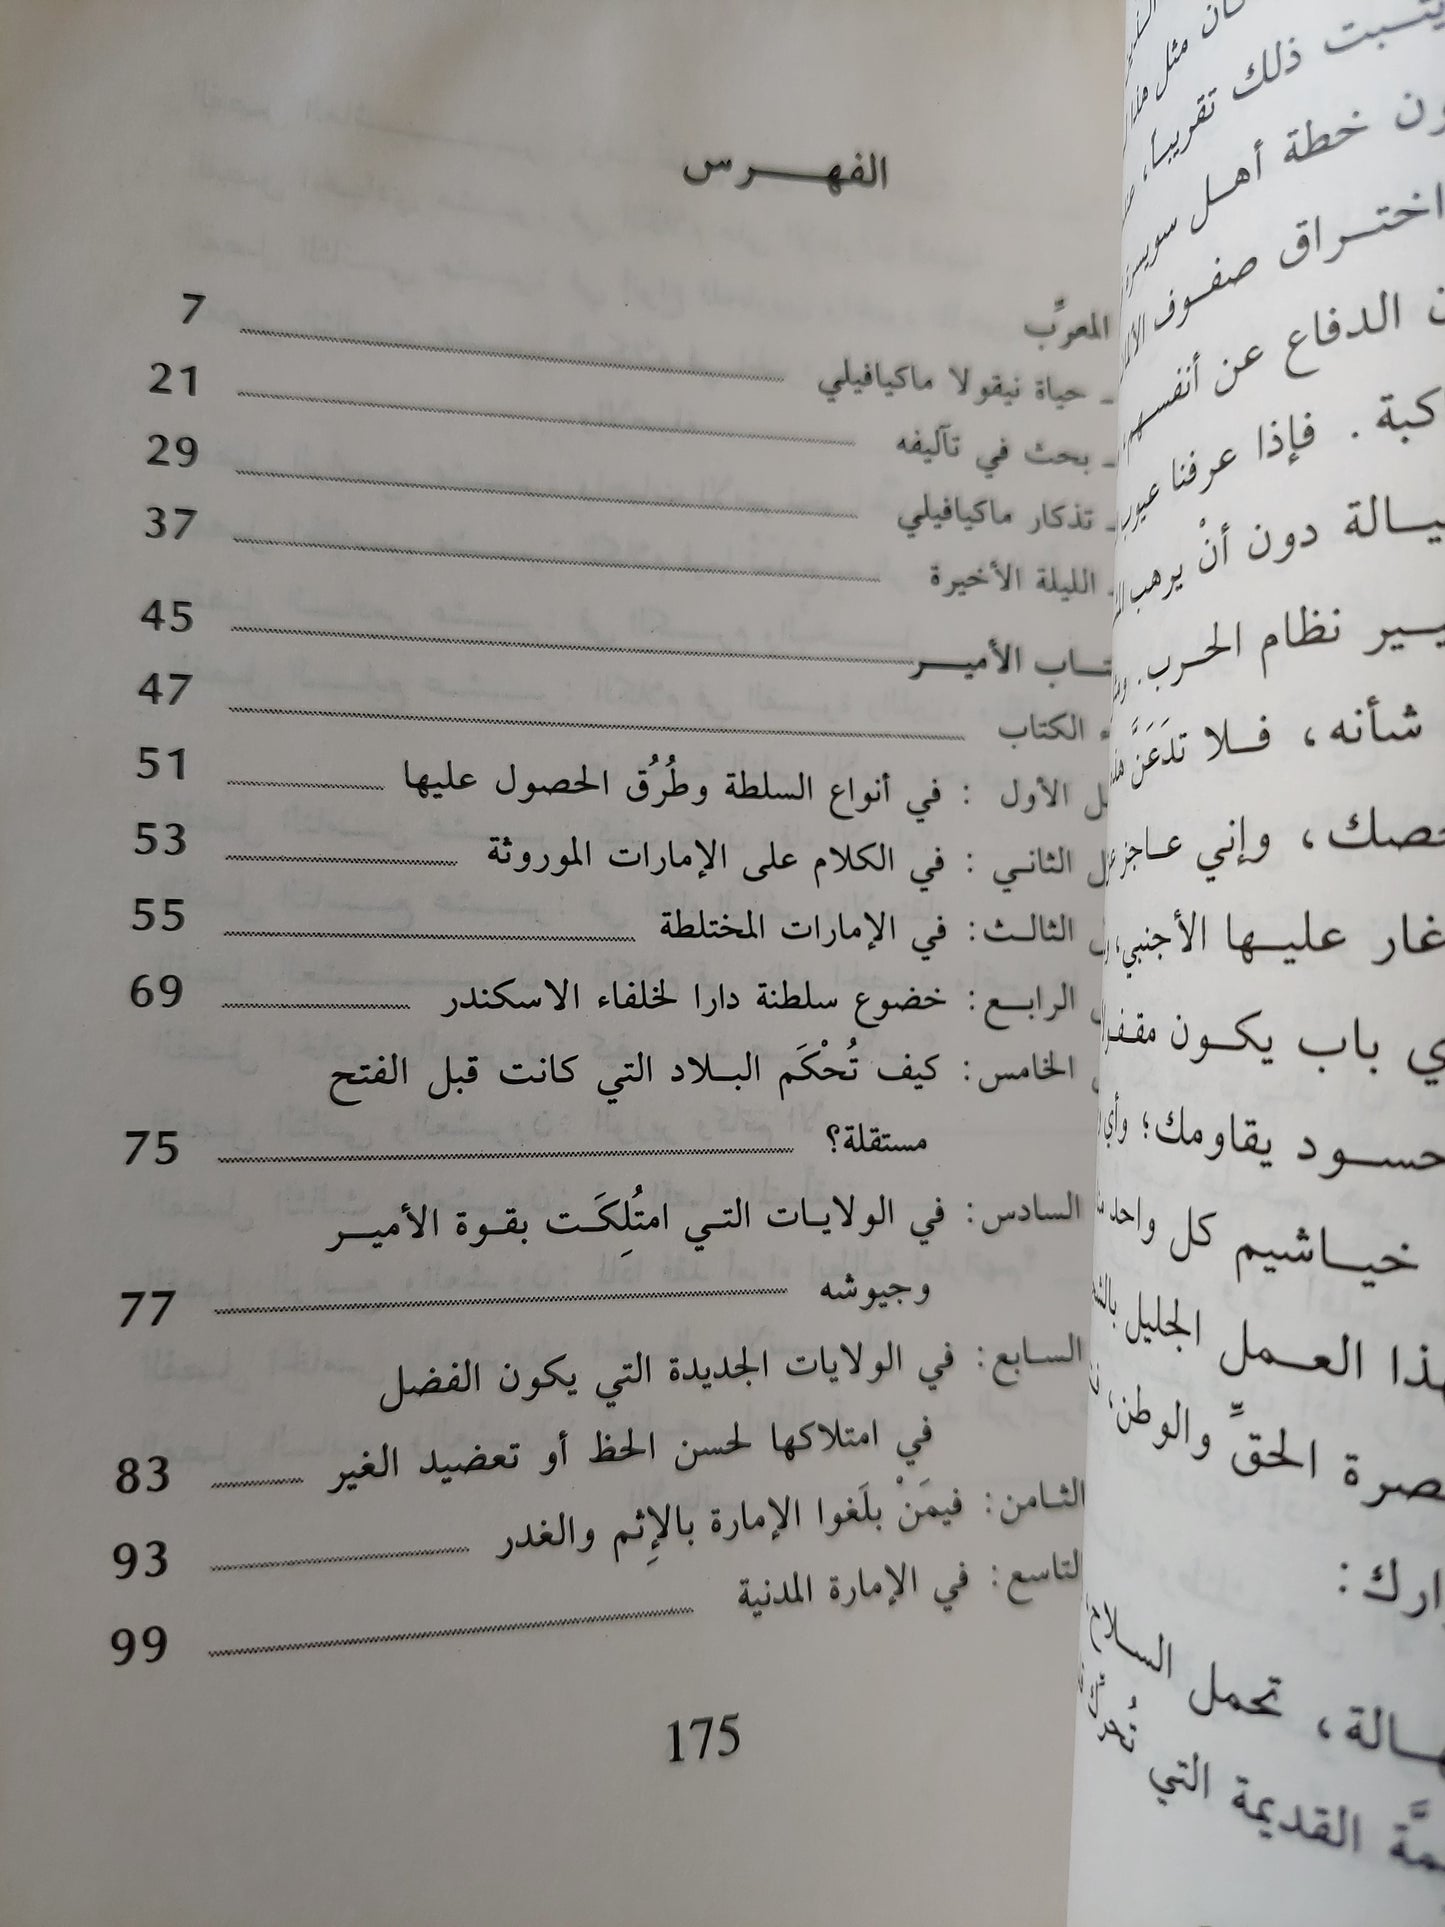 الفهـــرس
المعرِّب
7
ـ حياة نيقولا ماكيافيلي
21
ـ بحث في تآليفه
29
ـ تذكار ماكيافيلي
37
ـ الليلة الأخيرة
45
الأميـر
47
الكتاب
51
الأول : في أنواع السلطة وطُرُق الحصول عليها
53
الثاني : في الكلام على الإمارات الموروثة
55
الثالث: في الإمارات المختلطة
69
الرابع: خضوع سلطنة دارا لخلفاء الاسكندر
الخامس: كيف تُحْكَم البلاد التي كانت قبل الفتح
مستقلة؟ 75
السادس: في الولايات التي امتُلِكَت بقوة الأمير
وجيوشه 77
السابع: في الولايات الجديدة التي يكون الفضل
في امتلاكها لحسن الحظ أو تعضيد الغير 83
الثامن: فيمَنْ بلَغوا الإمارة بالإِثم والغدر 93
التاسع: في الإمارة المدنية 99
175
كان مثل هذا
يثبت ذلك تقريباً،
خطة أهل
اختراق صفوف
الدفاع عن أنفسهم
. فإذا عرفنا عيوب
دون أنْ يرهب
نظام الحرب.
شأنه، فلا تدَعَنَّ
، وإني عاجز
عليها الأجنبي،
باب يكون
يقاومك؛ وأي
خياشيم كل واحد
العمل الجليل
الحقِّ والوطن،
، تحمل السلاح
القديمة التي تُحرِّك